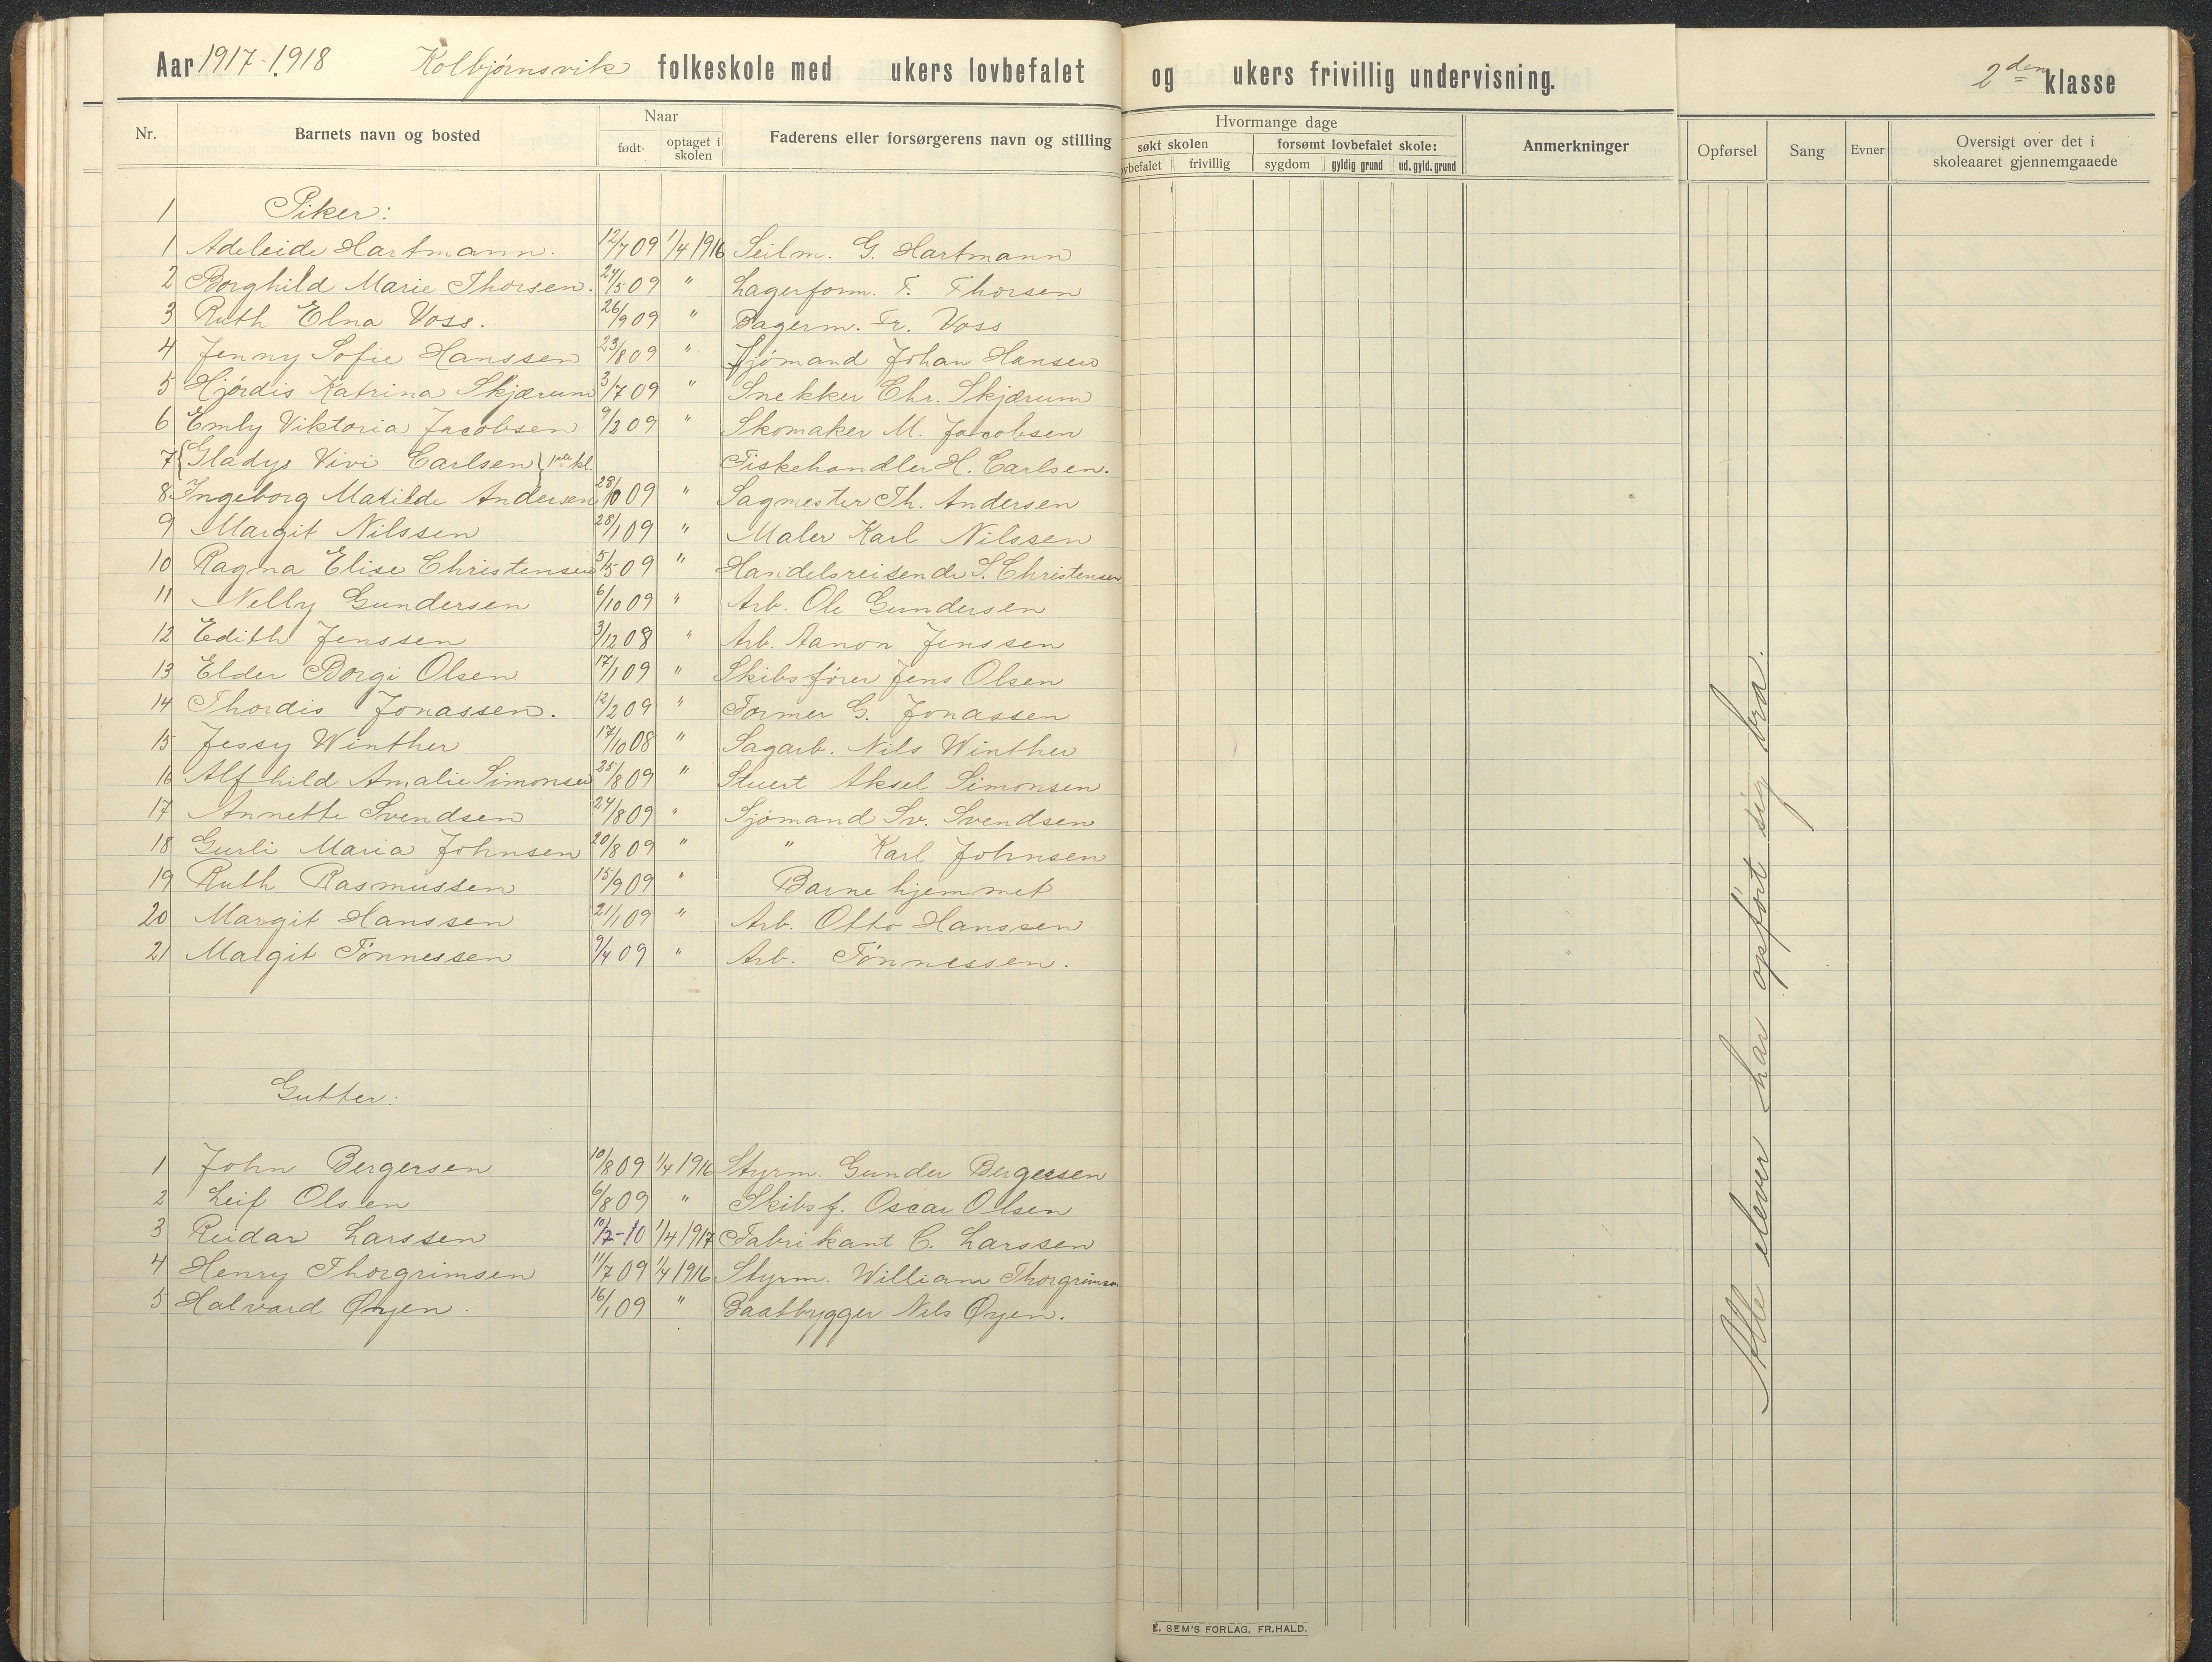 Aar 1917-1918 Kolbjørnsvik folkeskole med ukers lovbefalet og ukers frivillig undervisning. 2den klasse
Nr. Barnets navn og bosted Naar født optaget i skolen Faderens eller forsørgerens navn og stilling Hvormange dage søkt skolen lovbefalet frivillig forsømt lovbefalet skole: sygdom gyldig grund ud. gyld. grund Anmerkninger Opførsel Sang Evner Oversigt over det i skoleaaret gjennemgaaede
1 Piker:
1 Adeleide Hartmann. 12/7 09 1/4 1916 Seilm. G. Hartmann
2 Borghild Marie Thorsen. 24/5 09 " Lagerform. F. Thorsen
3 Ruth Elna Voss. 26/9 09 " Bagerm. Fr. Voss
4 Jenny Sofie Hanssen 23/8 09 " Sjømand Johan Hansen
5 Hjørdis Katrina Skjærum 3/7 09 " Snekker Chr. Skjærum
6 Emly Viktoria Jacobsen 9/2 09 " Skomaker M. Jacobsen
7 {Gladys Vivi Carlsen} 1ste kl. Fiskehandler H. Carlsen.
8 Ingeborg Matilde Andersen 28/10 09 " Sagmester Th. Andersen
9 Margit Nilssen 28/1 09 " Maler Karl Nilssen
10 Ragna Elise Christensen 5/5 09 " Handelsreisende S. Christensen
11 Nelly Gundersen 6/10 09 " Arb. Ole Gundersen
12 Edith Jenssen 3/12 08 " Arb. Aanon Jenssen
13 Elder Borgi Olsen 17/1 09 " Skibsfører Jens Olsen
14 Thordis Jonassen. 12/2 09 " Former G. Jonassen
15 Jessy Winther 17/10 08 " Sagarb. Nils Winther
16 Alfhild Amalie Simonsen 25/8 09 " Stuert Aksel Simonsen
17 Annette Svendsen 24/8 09 " Sjømand Sv. Svendsen
18 Gurli Maria Johnsen 20/8 09 " " Karl Johnsen
19 Ruth Rasmussen 15/9 09 " Barnehjemmet
20 Margit Hanssen 21/1 09 " Arb. Otto Hanssen
21 Margit Tønnessen 9/4 09 " Arb. Tønnessen.
Gutter:
1 John Bergersen 10/8 09 1/4 1916 Styrm. Gunder Bergersen
2 Leif Olsen 6/8 09 " Skibsf. Oscar Olsen
3 Reidar Larssen 10/2-10 1/4 1917 Fabrikant C. Larssen
4 Henry Thorgrimsen 11/7 09 1/4 1916 Styrm. William Thorgrimsen
5 Halvard Øyen. 16/1 09 " Baatbygger Nils Øyen.
Alle elever har opført sig bra.
E. SEM'S FORLAG, FR.HALD.